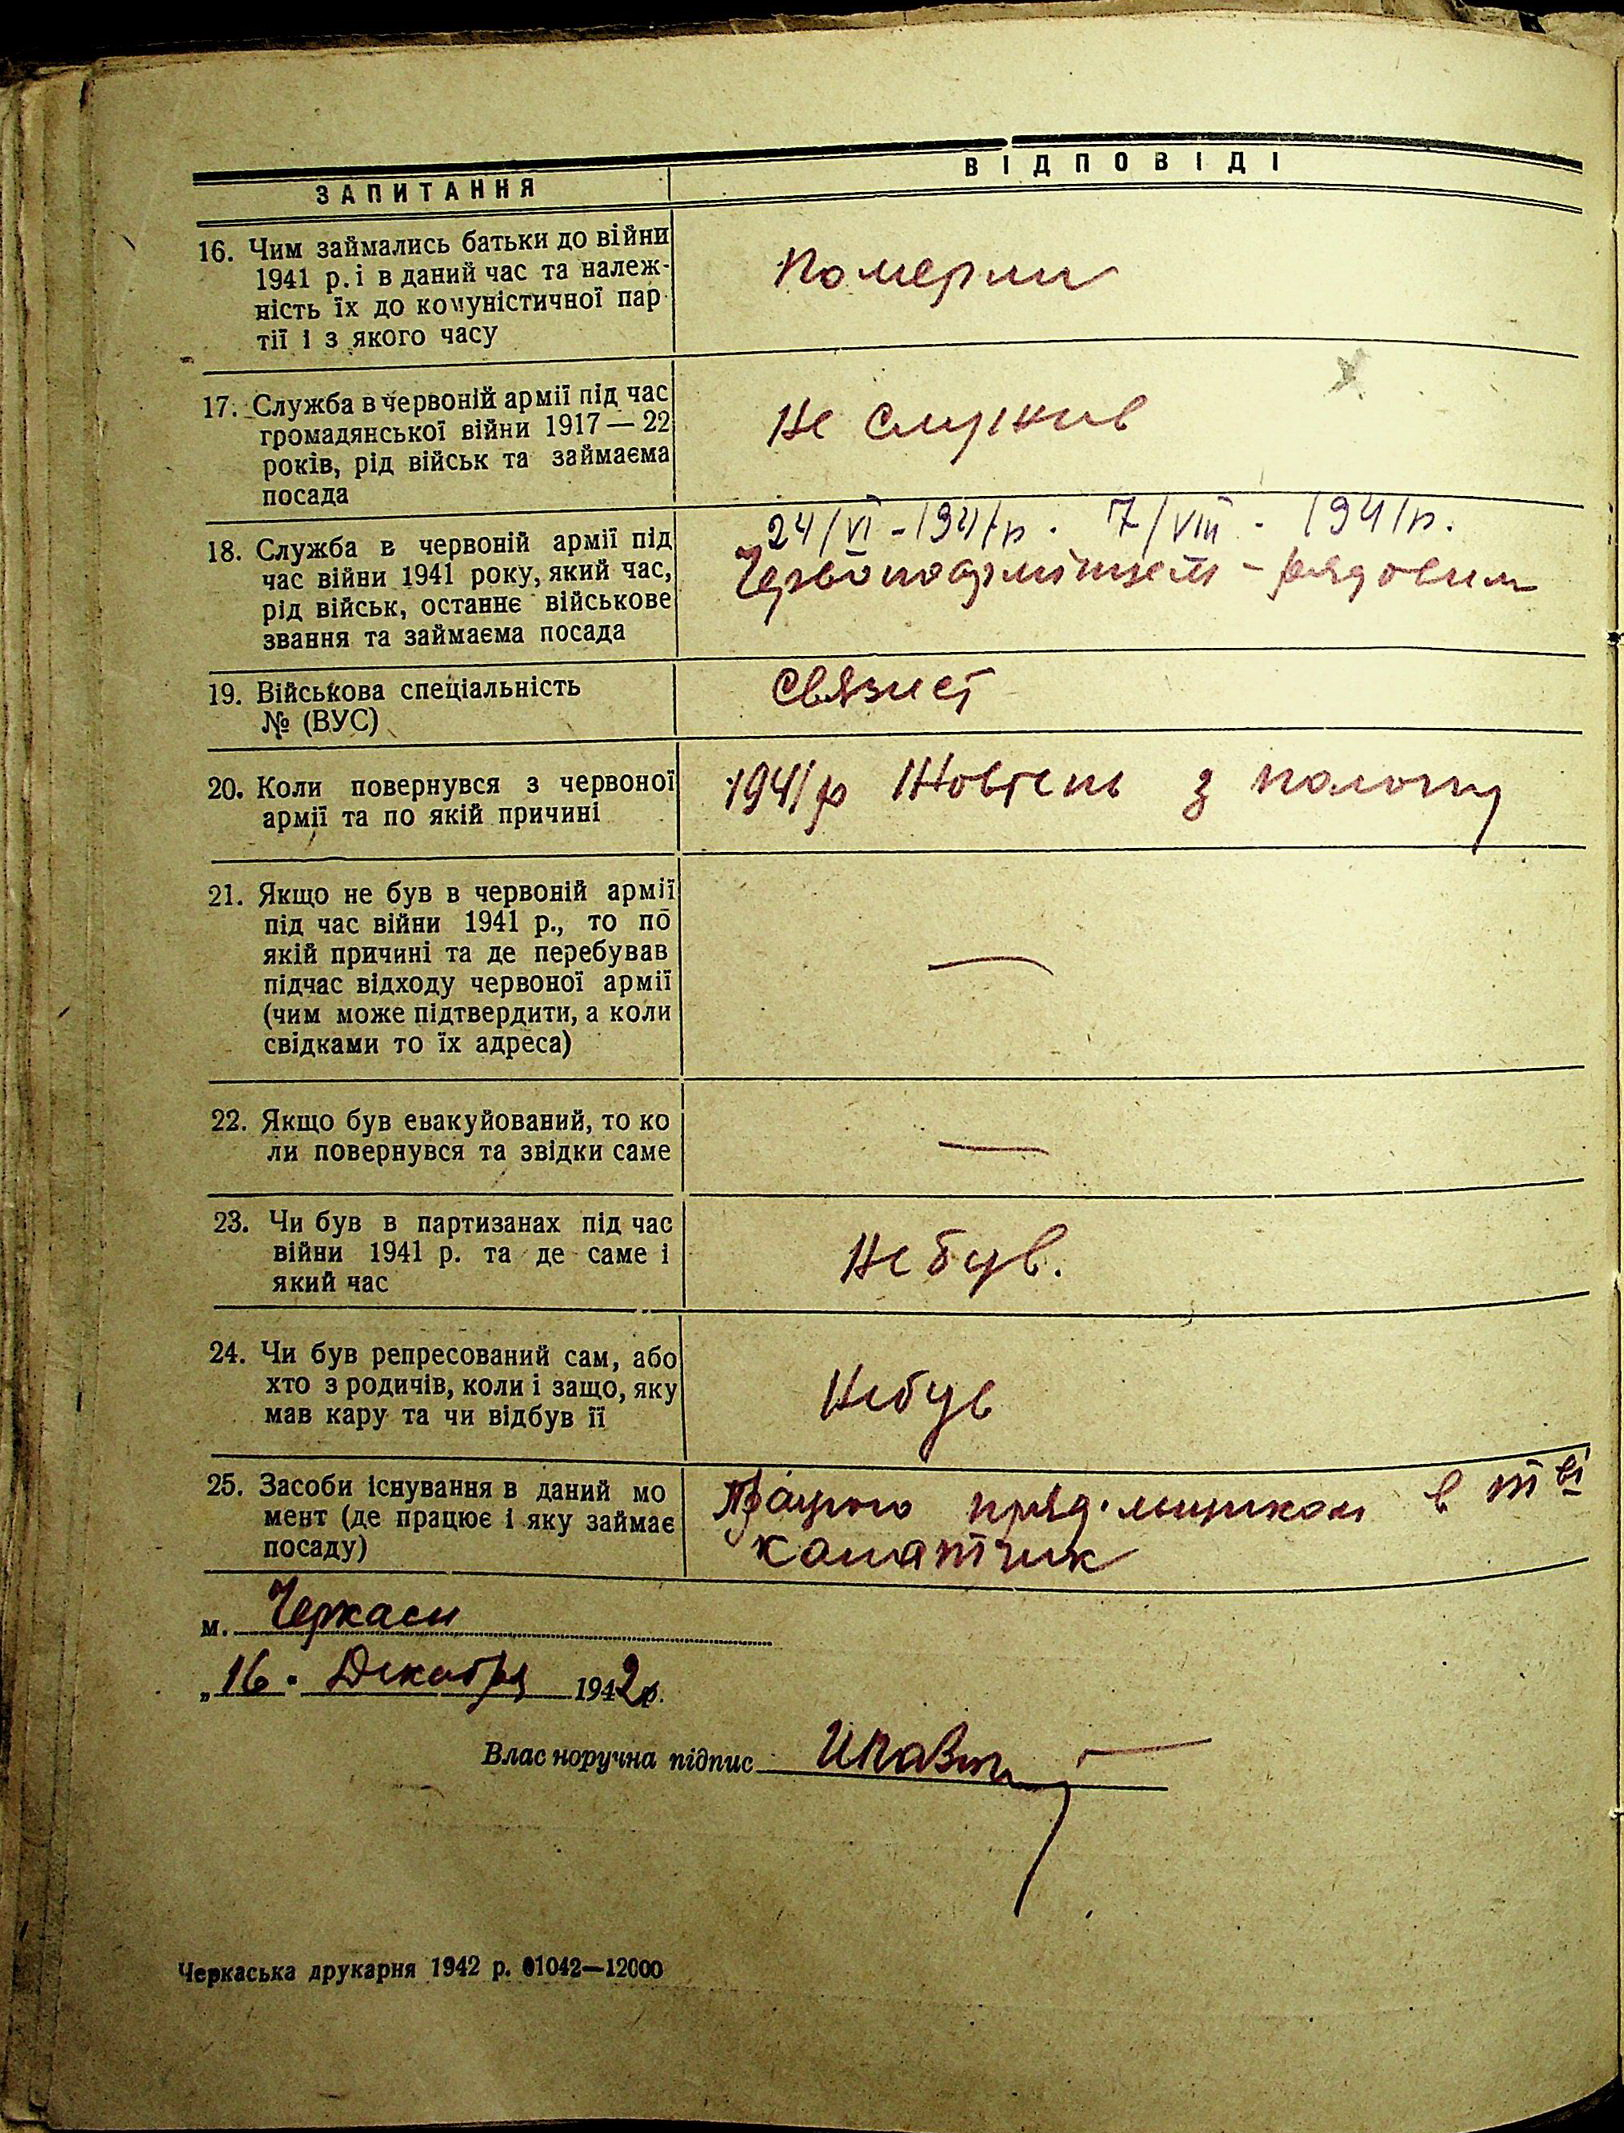 ЗАПИТАННЯ
ВІДПОВІДІ
16. Чим займались батьки до війни
1941 р. і в даний час та належ-
ність їх до комуністичної пар
тії і з якого часу
Померли
17. Служба в червоній армії під час
громадянської війни 1917 — 22
років, рід військ та займаєма
посада
Не служив
18. Служба в червоній армії під
час війни 1941 року, який час,
рід військ, останнє військове
звання та займаєма посада
24/VI - 1941р. 7/VIII - 1941р.
Червоноармійцем - рядовим
19. Військова спеціальність
№ (ВУС)
Связист
20. Коли повернувся з червоної
армії та по якій причині
1941р Жовтень з полону
21. Якщо не був в червоній армії
під час війни 1941 р., то по
якій причині та де перебував
підчас відходу червоної армії
(чим може підтвердити, а коли
свідками то їх адреса)
—
22. Якщо був евакуйований, то ко
ли повернувся та звідки саме
—
23. Чи був в партизанах під час
війни 1941 р. та де саме і
який час
Не був.
24. Чи був репресований сам, або
хто з родичів, коли і защо, яку
мав кару та чи відбув її
Не був
25. Засоби існування в даний мо
мент (де працює і яку займає
посаду)
Працюю в т ві
канатчик
м. Черкаси
„16" Декабря 1942р.
Власноручна підпис
Черкаська друкарня 1942 р. 01042—12000